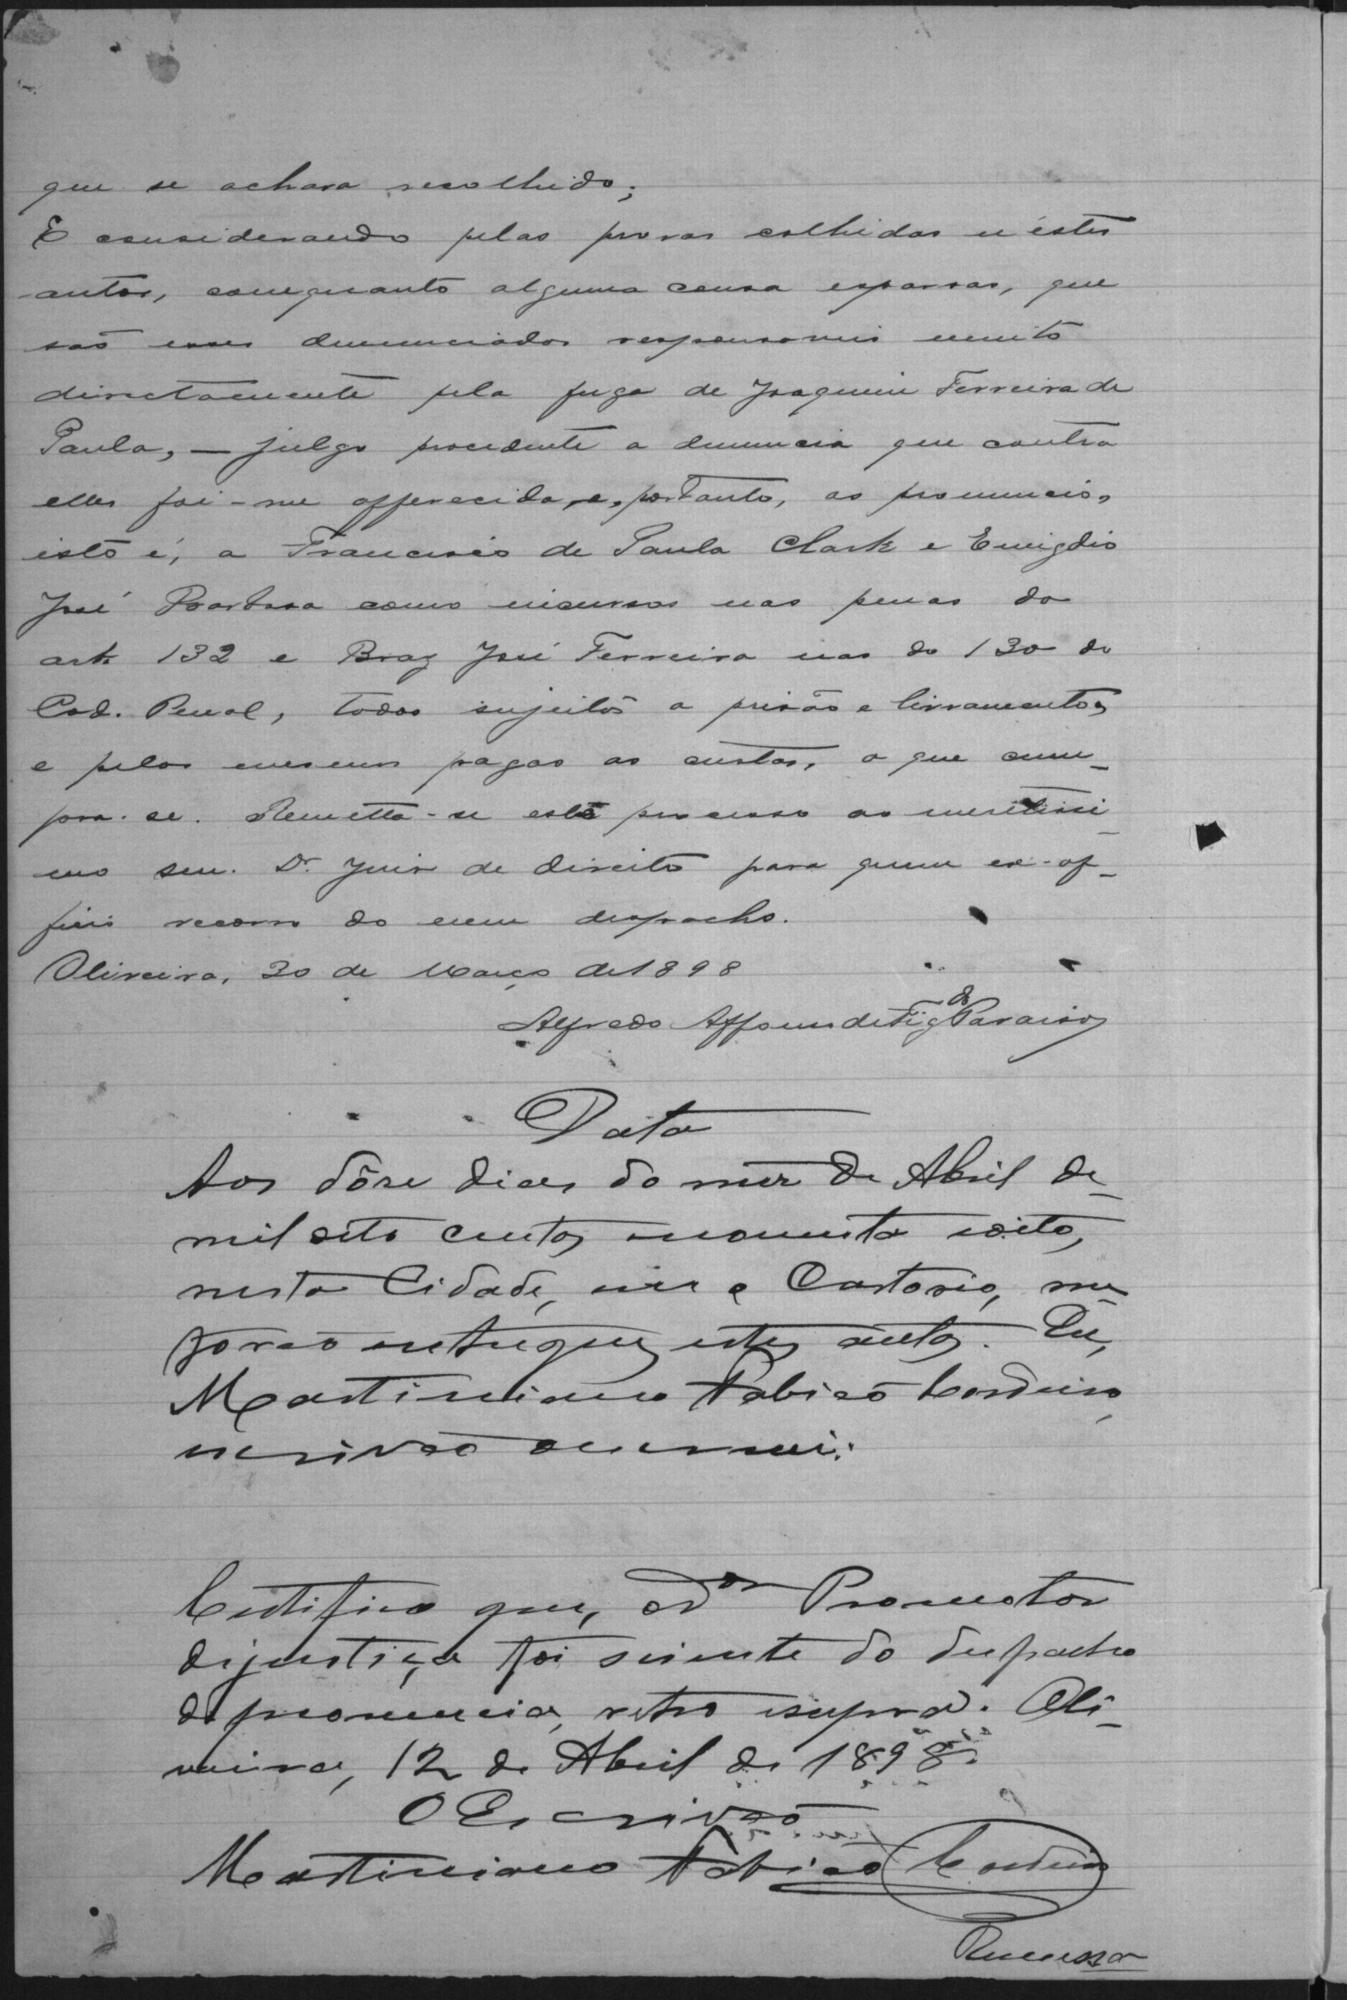 que se achava recolhido;
E considerando pelas provas colhidas n'estes
autos, comquanto alguma cousa esparsas, que
são esses denunciados responsaveis muito
directamente pela fuga de Joaquim Ferreira de
Paula, — julgo procedente a denuncia que contra
elles foi-me offerecida, e, portanto, os pronuncio,
isto é, a Francisco de Paula Clark e Emigdio
José Barbosa como incursos nas penas do
art. 132 e Braz José Ferreira nas do 130 do
Cod. Penal, todos sujeitos a prisão e livramento,
e pelos mesmos pagas as custas, o que cum-
pra-se. Remetta-se este processo ao meritissi-
mo snr. Dr. Juiz de direito para quem ex-of-
ficio recorro do meu despacho.
Oliveira, 30 de Março de 1898
Alfredo Affonso de Figdo Paraiso
Data
Aos dôse dias do mez de Abril de
mil oito centos noventa e oito,
nesta Cidade, em o Cartorio, me
forão entregues estes autos. Eu,
Martiniano Fabião Cordeiro,
escrivão escrevi.
Certifico que, o Dor Promotor
de justiça foi siente do despacho
de pronuncia, retro e supra. Oli-
veira, 12 de Abril de 1898.
O Escrivão
Martiniano Fabião Cordeiro
Remessa